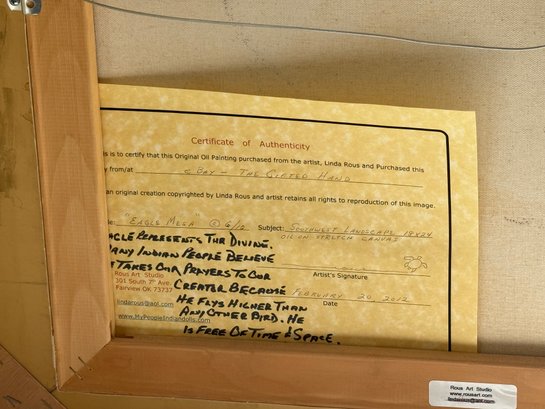 Certificate of Authenticity
is is to certify that this Original Oil Painting purchased from the artist, Linda Rous and Purchased this
y from/at DAY - THE GIFTED HAND
an original creation copyrighted by Linda Rous and artist retains all rights to reproduction of this image.
e: "EAGLE MESA" © Subject: SOUTHWEST LANDSCAPE 18x24
OIL ON STRETCH CANVAS
AGLE REPRESENTS THE DIVINE.
ANY INDIAN PEOPLE BELIEVE
TAKES OUR PRAYERS TO OUR
CREATOR BECAUSE
HE FLYS HIGHER THAN
ANY OTHER BIRD. HE
IS FREE OF TIME & SPACE.
Artist's Signature
Rous Art Studio
301 South 7th Ave.
Fairview OK 73737
FEBRUARY 20, 2012
Date
lindarous@aol.com
www.MyPeopleIndiandolls.com
Rous Art Studio
www.rousart.com
lindarous@aol.com